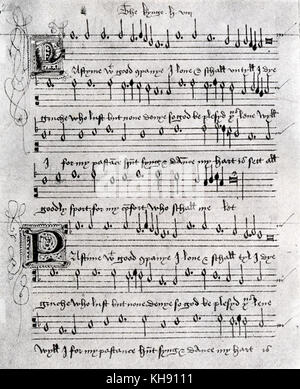 The kynge h viii
Pastyme wt good companye I loue & schall vntyll I dye
gruche who lust but none denye so god be plesyd yus leue wyll
I for my pastance hunt syng & dance my hart is sett all
goodly sport for my comfort who schall me let
Pastyme wt good companye I loue & schall tyl I dye
gruche who lust but none denye so god be plesyd yus leue
wyll I for my pastance hunt syng & dance my hart is
alamy
alamy
a
a
KH9111